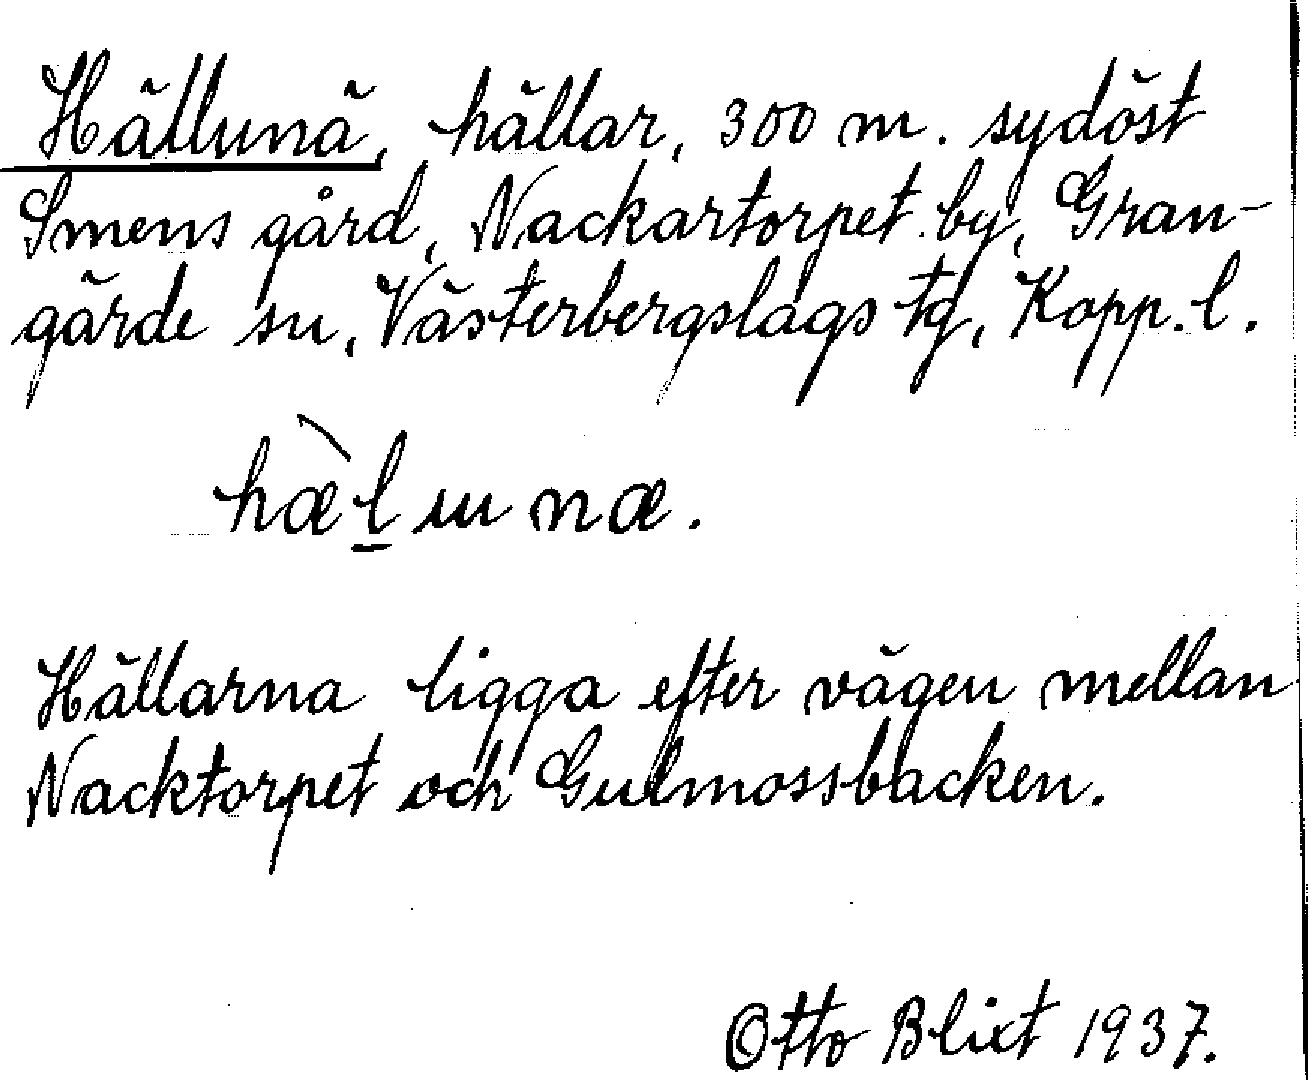 Hällunä, hällar, 300 m. sydöst
Smens gård, Nackartorpet by, Gran-
gärde sn, Västerbergslags tg, Kopp. l.
hæ̀l̲unæ.
Hällarna ligga efter vägen mellan
Nacktorpet och Gulmossbacken.
Otto Blixt 1937.